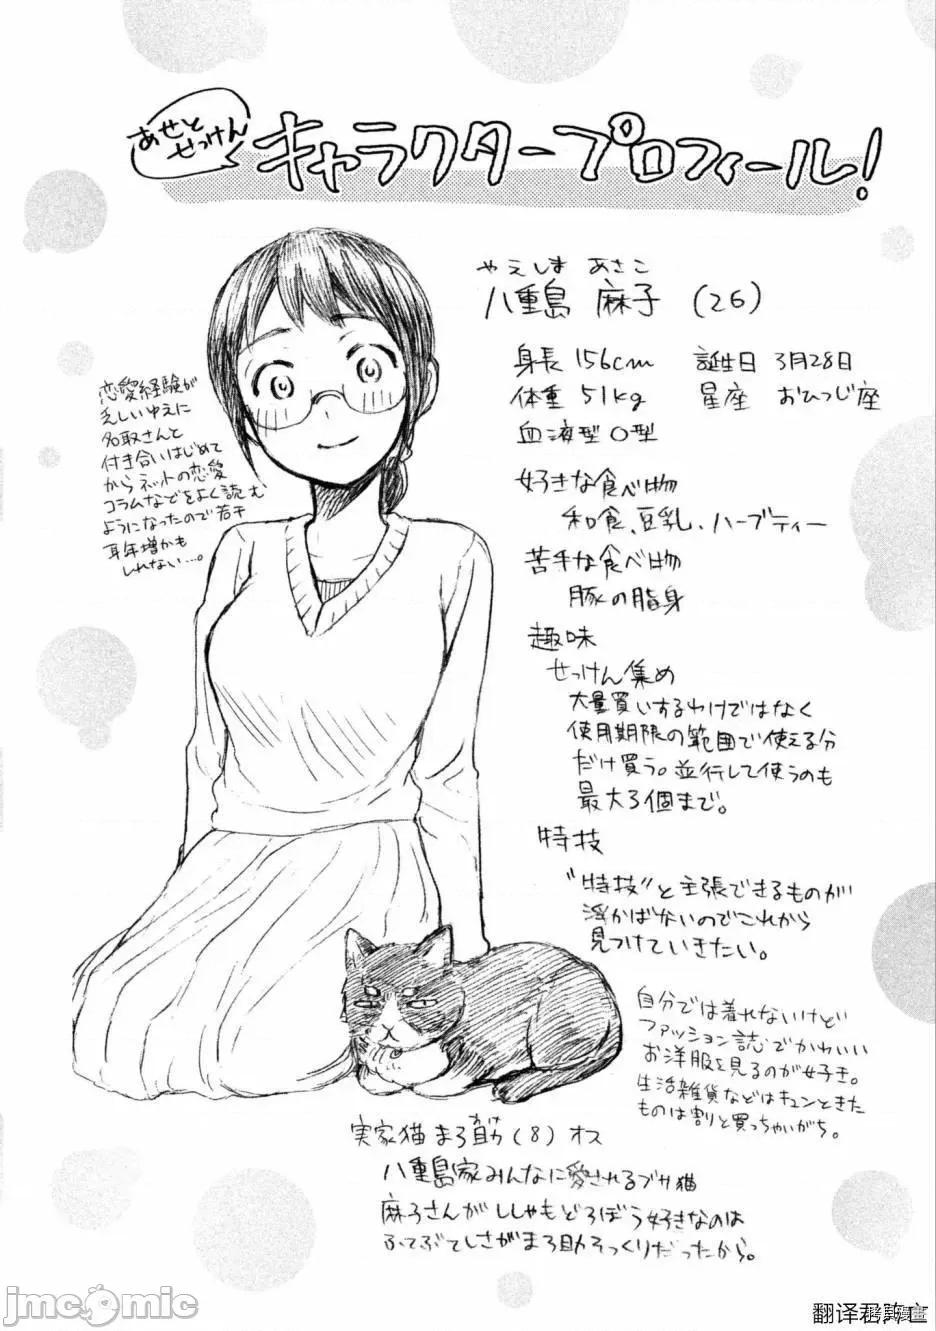 あせと
せっけん
キャラクタープロフィール!
やえしま あさこ
八重島 麻子 (26)
身長 156cm 誕生日 3月28日
体重 51kg 星座 おひつじ座
血液型 O型
恋愛経験が
乏しいゆえに
名取さんと
付き合いはじめて
からネットの恋愛
コラムなどをよく読む
ようになったので若干
耳年増かも
しれない…。
好きな食べ物
和食、豆乳、ハーブティー
苦手な食べ物
豚の脂身
趣味
せっけん集め
大量買いするわけではなく
使用期限の範囲で使える分
だけ買う。並行して使うのも
最大3個まで。
特技
"特技"と主張できるものが
浮かばないのでこれから
見つけていきたい。
自分では着れないけど
ファッション誌でかわいい
お洋服を見るのが好き。
生活雑貨などはキュンときた
ものは割と買っちゃいがち。
実家猫 まろ助 (8) オス
八重島家みんなに愛されるブサ猫
麻子さんがししゃもどろぼう好きなのは
ふてぶてしさがまろ助そっくりだったから。
jmcomic
翻译君阵亡